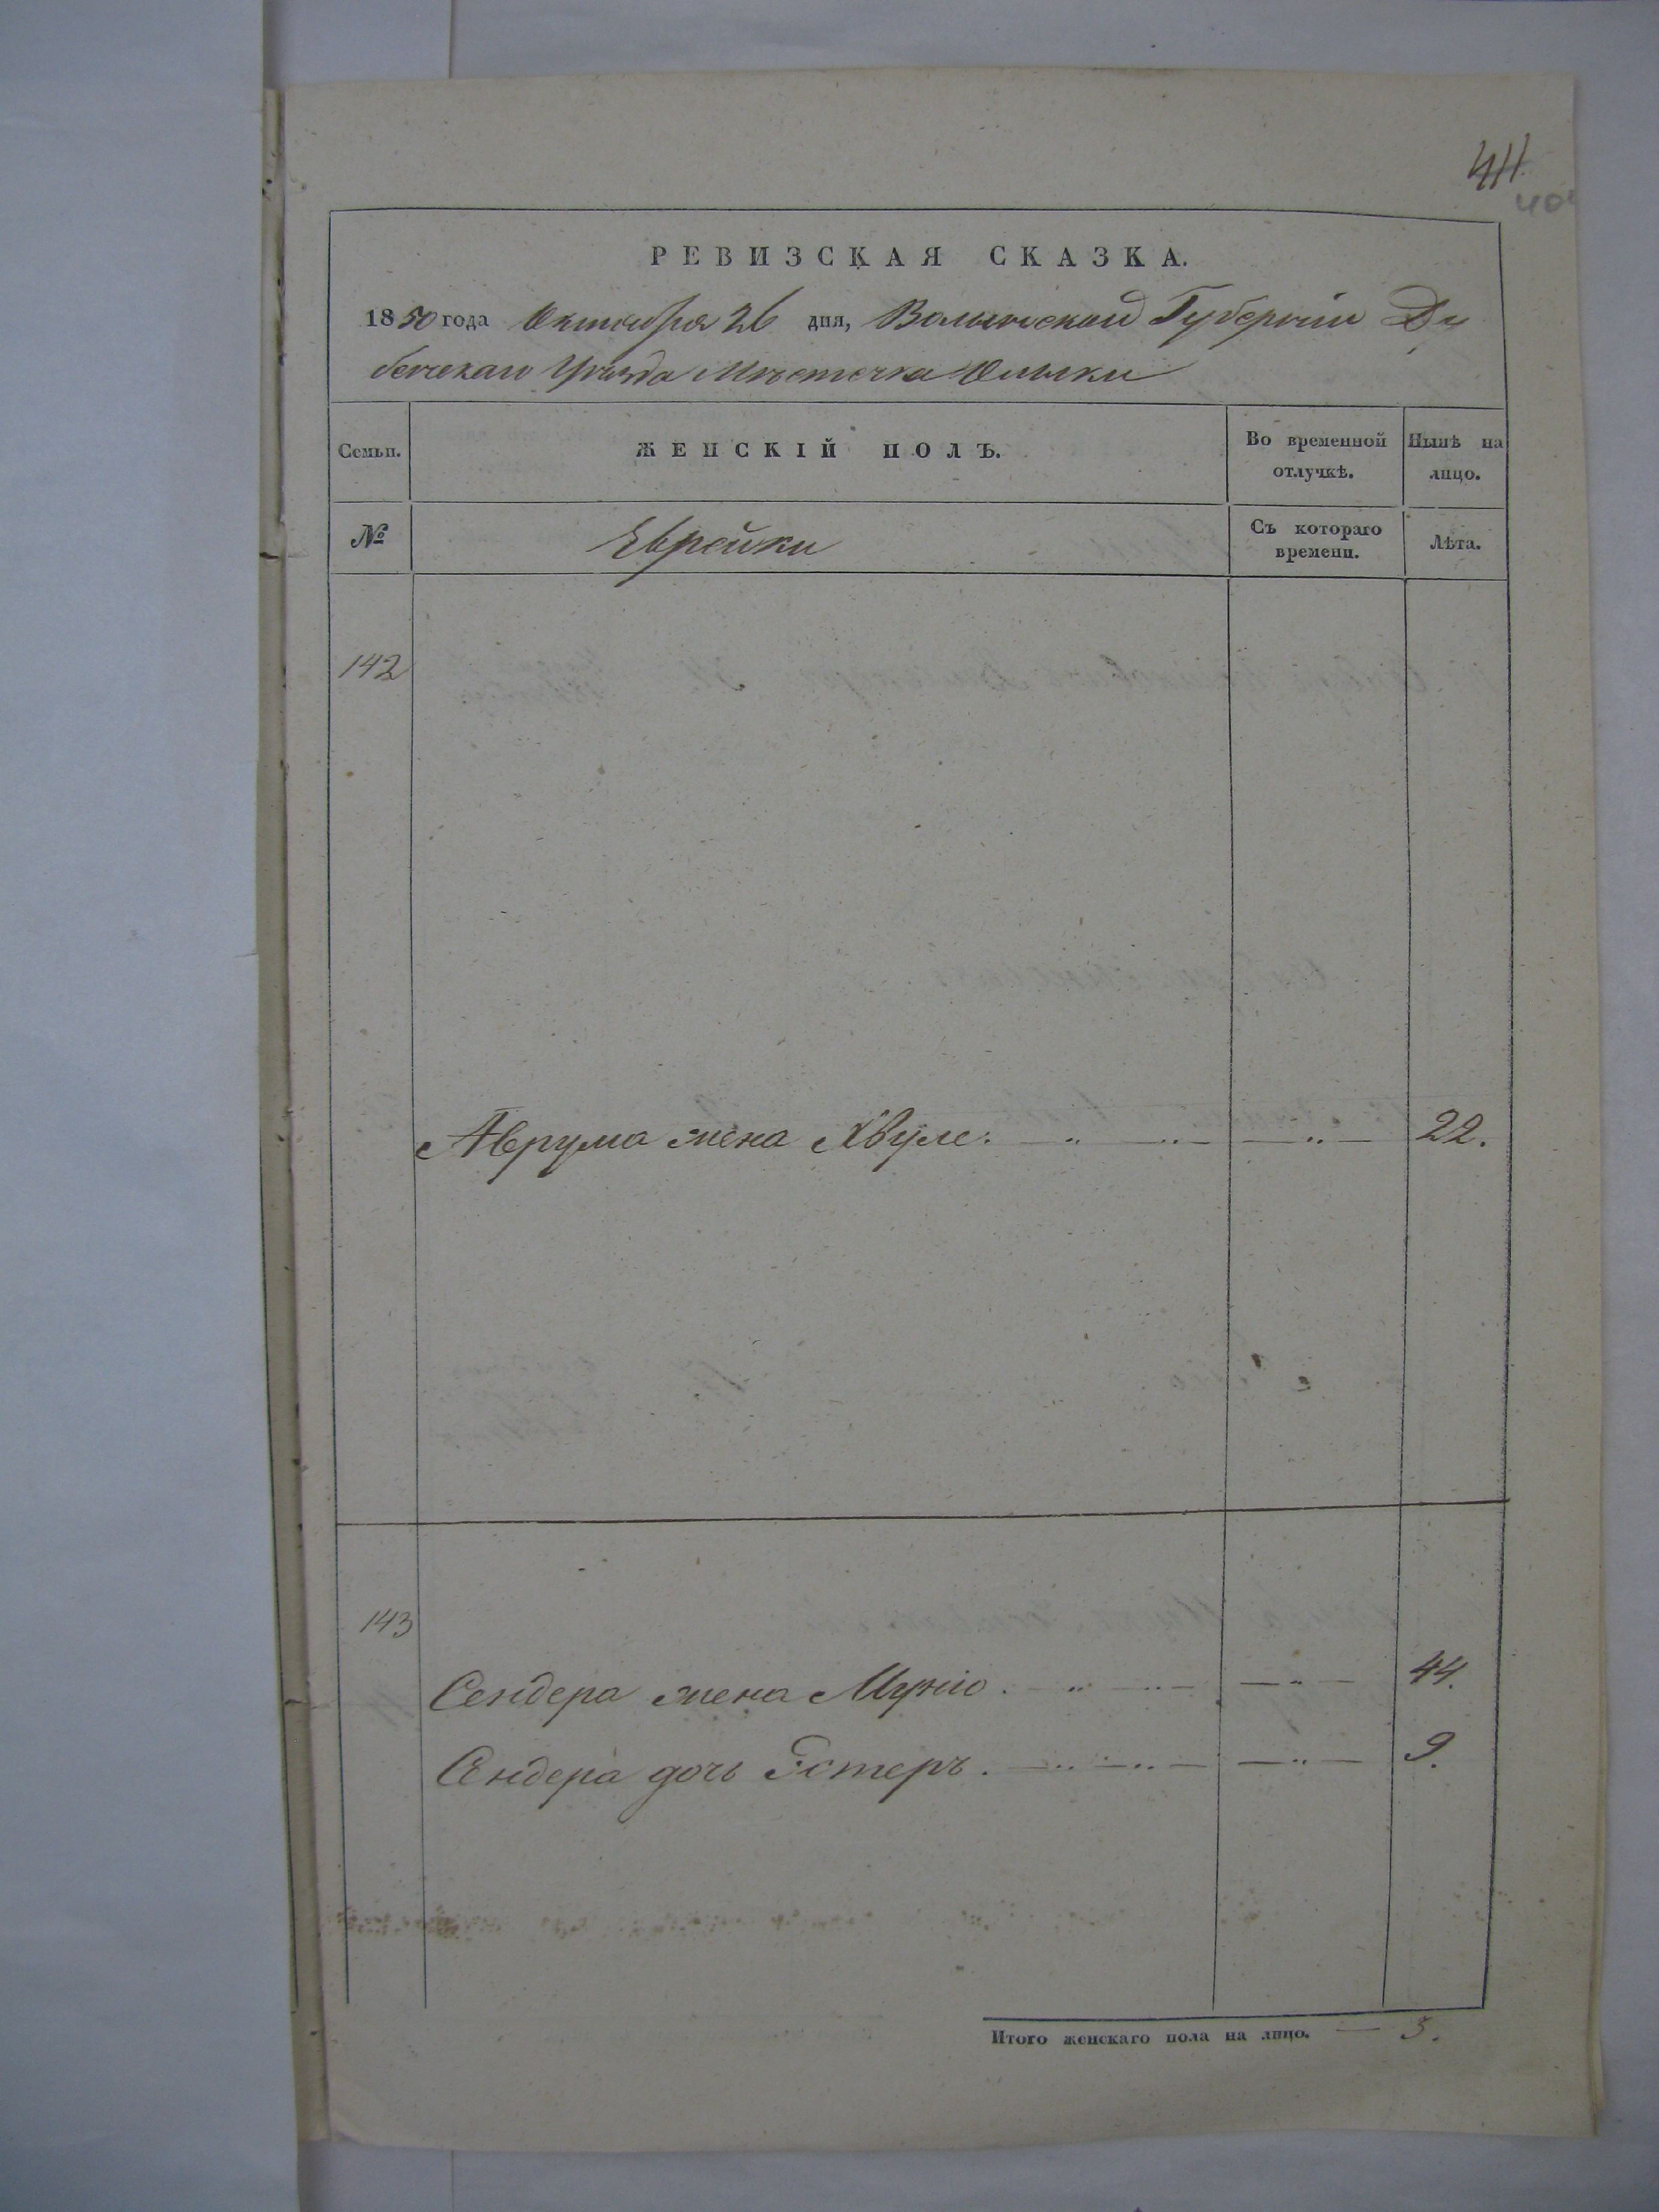 44
40
РЕВИЗСКАЯ СКАЗКА.
1850 года Октября 26 дня, Волынской Губернiи Ду
бенскаго Уѣзда Мѣстечка Олыки
Семьи. ЖЕНСКIЙ ПОЛЪ. Во временной отлучкѣ. Нынѣ на лицо.
№ Еврейки Съ котораго времени. Лѣта.
142
Аврума жена Хвуле. — „ — „ — — „ — 22.
143
Сендера жена Мунiо. — „ — „ — — „ — 44.
Сендера дочь Эстеръ. — „ — „ — — „ — 9.
Итого женскаго пола на лицо. — 3.